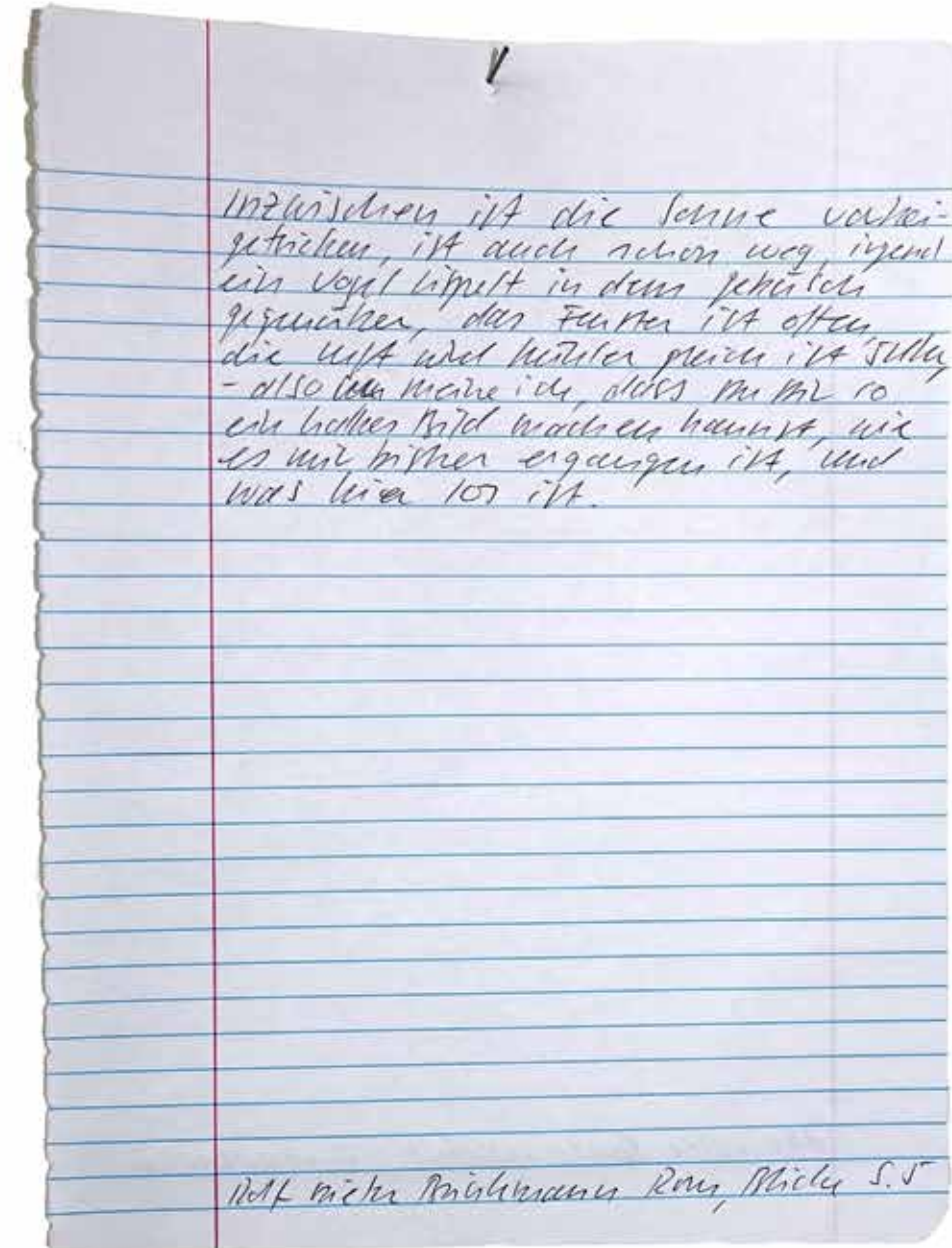 Inzwischen ist die Sonne vorbei
getrieben, ist auch schon weg, irgend
ein Vogel lispelt in dem Gebüsch
gegenüber, das Fenster ist offen,
die Luft wird kühler, gleich ist
- also meine ich, dass Du Dir so
ein halbes Bild machen kannst, wie
es mir bisher ergangen ist, und
was hier los ist.
Rolf Dieter Brinkmann Rom, Blicke S. 5